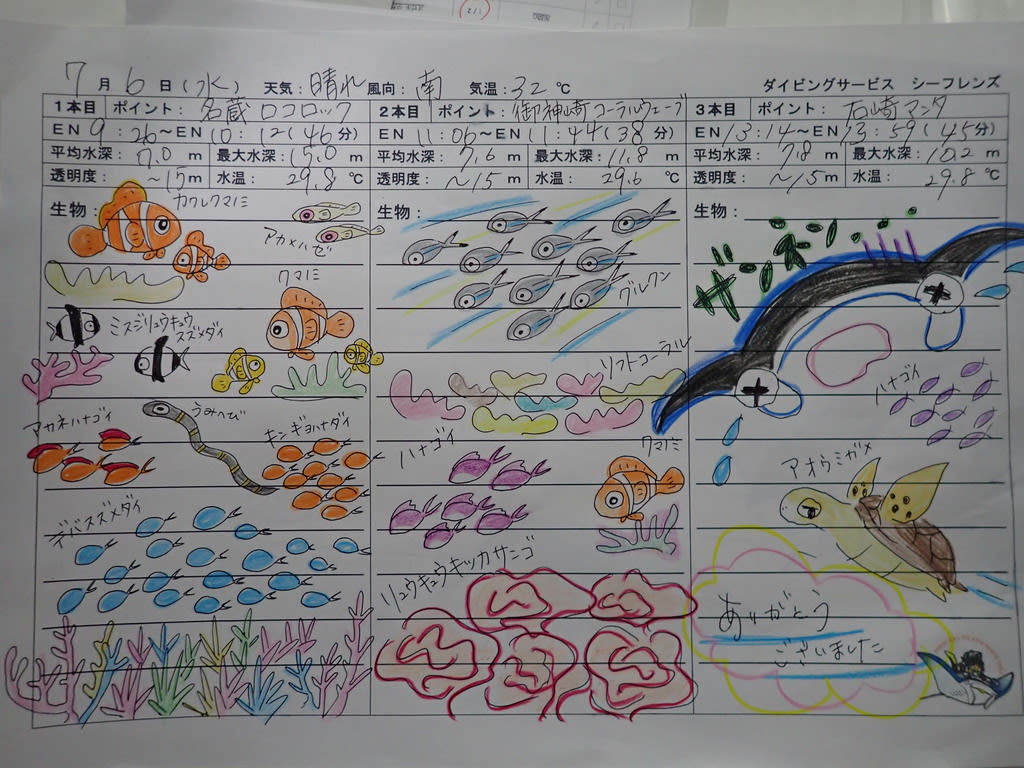 7月6日(水) 天気:晴れ 風向:南 気温:32℃ ダイビングサービス シーフレンズ
1本目 ポイント:名蔵ロコロック
EN 9:26~EN 10:12(46分)
平均水深:7.0m 最大水深:15.0m
透明度:~15m 水温:29.8℃
生物:
カクレクマノミ
アカメハゼ
クマノミ
ミスジリュウキュウ
スズメダイ
アカネハナゴイ
うみへび
キンギョハナダイ
デバスズメダイ
2本目 ポイント:御神崎コーラルウェーブ
EN 11:06~EN 11:44(38分)
平均水深:7.6m 最大水深:11.8m
透明度:~15m 水温:29.6℃
生物:
グルクン
ソフトコーラル
ハナゴイ
クマノミ
リュウキュウキッカサンゴ
3本目 ポイント:石崎マンタ
EN 13:14~EN 13:59(45分)
平均水深:7.8m 最大水深:10.2m
透明度:~15m 水温:29.8℃
生物:
ザ・ンネーン
ハナゴイ
アオウミガメ
ありがとう
ございました